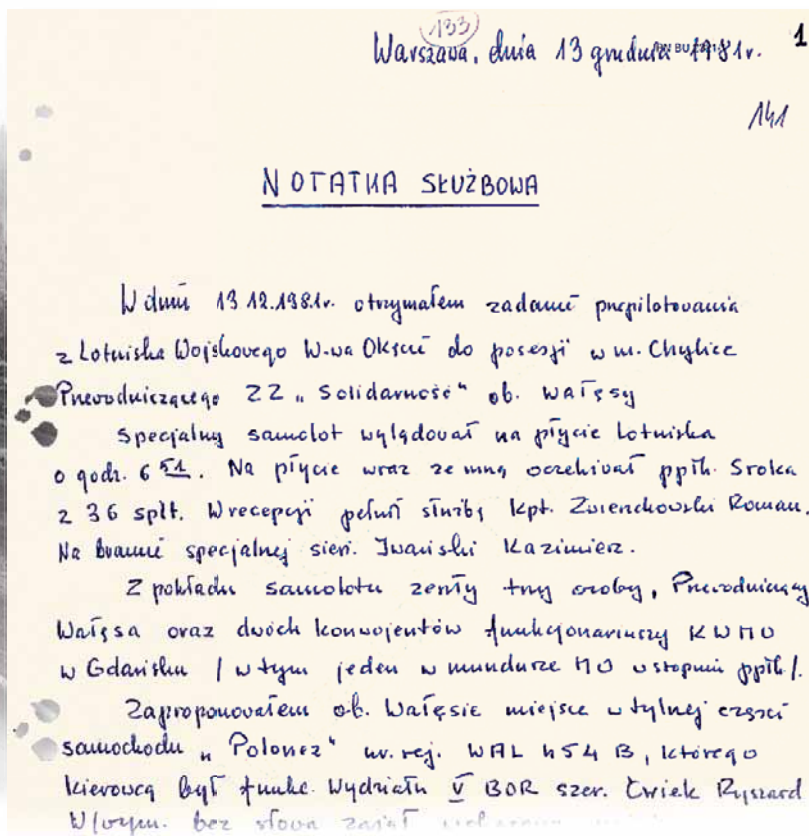 133
Warszawa, dnia 13 grudnia 1981r.
1
141
NOTATKA SŁUŻBOWA
W dniu 13.12.1981r. otrzymałem zadanie przepilotowania
z Lotniska Wojskowego W-wa Okęcie do posesji w m. Chylice
Przewodniczącego ZZ „Solidarność" ob. Wałęsy
Specjalny samolot wylądował na płycie lotniska
o godz. 6 51. Na płycie wraz ze mną oczekiwał ppłk. Sroka
z 36 splt. W recepcji pełnił służbę kpt. Zwierzchowski Roman.
Na bramie specjalnej sierż. Iwański Kazimierz.
Z pokładu samolotu zeszły trzy osoby, Przewodniczący
Wałęsa oraz dwóch konwojentów funkcjonariuszy KWMO
w Gdańsku / w tym jeden w mundurze MO w stopniu ppłk /.
Zaproponowałem ob. Wałęsie miejsce w tylnej części
samochodu „Polonez" nr. rej. WAL 454 B, którego
kierowcą był funkc. Wydziału V BOR szer. Ćwiek Ryszard
W/wym. bez słowa zajął